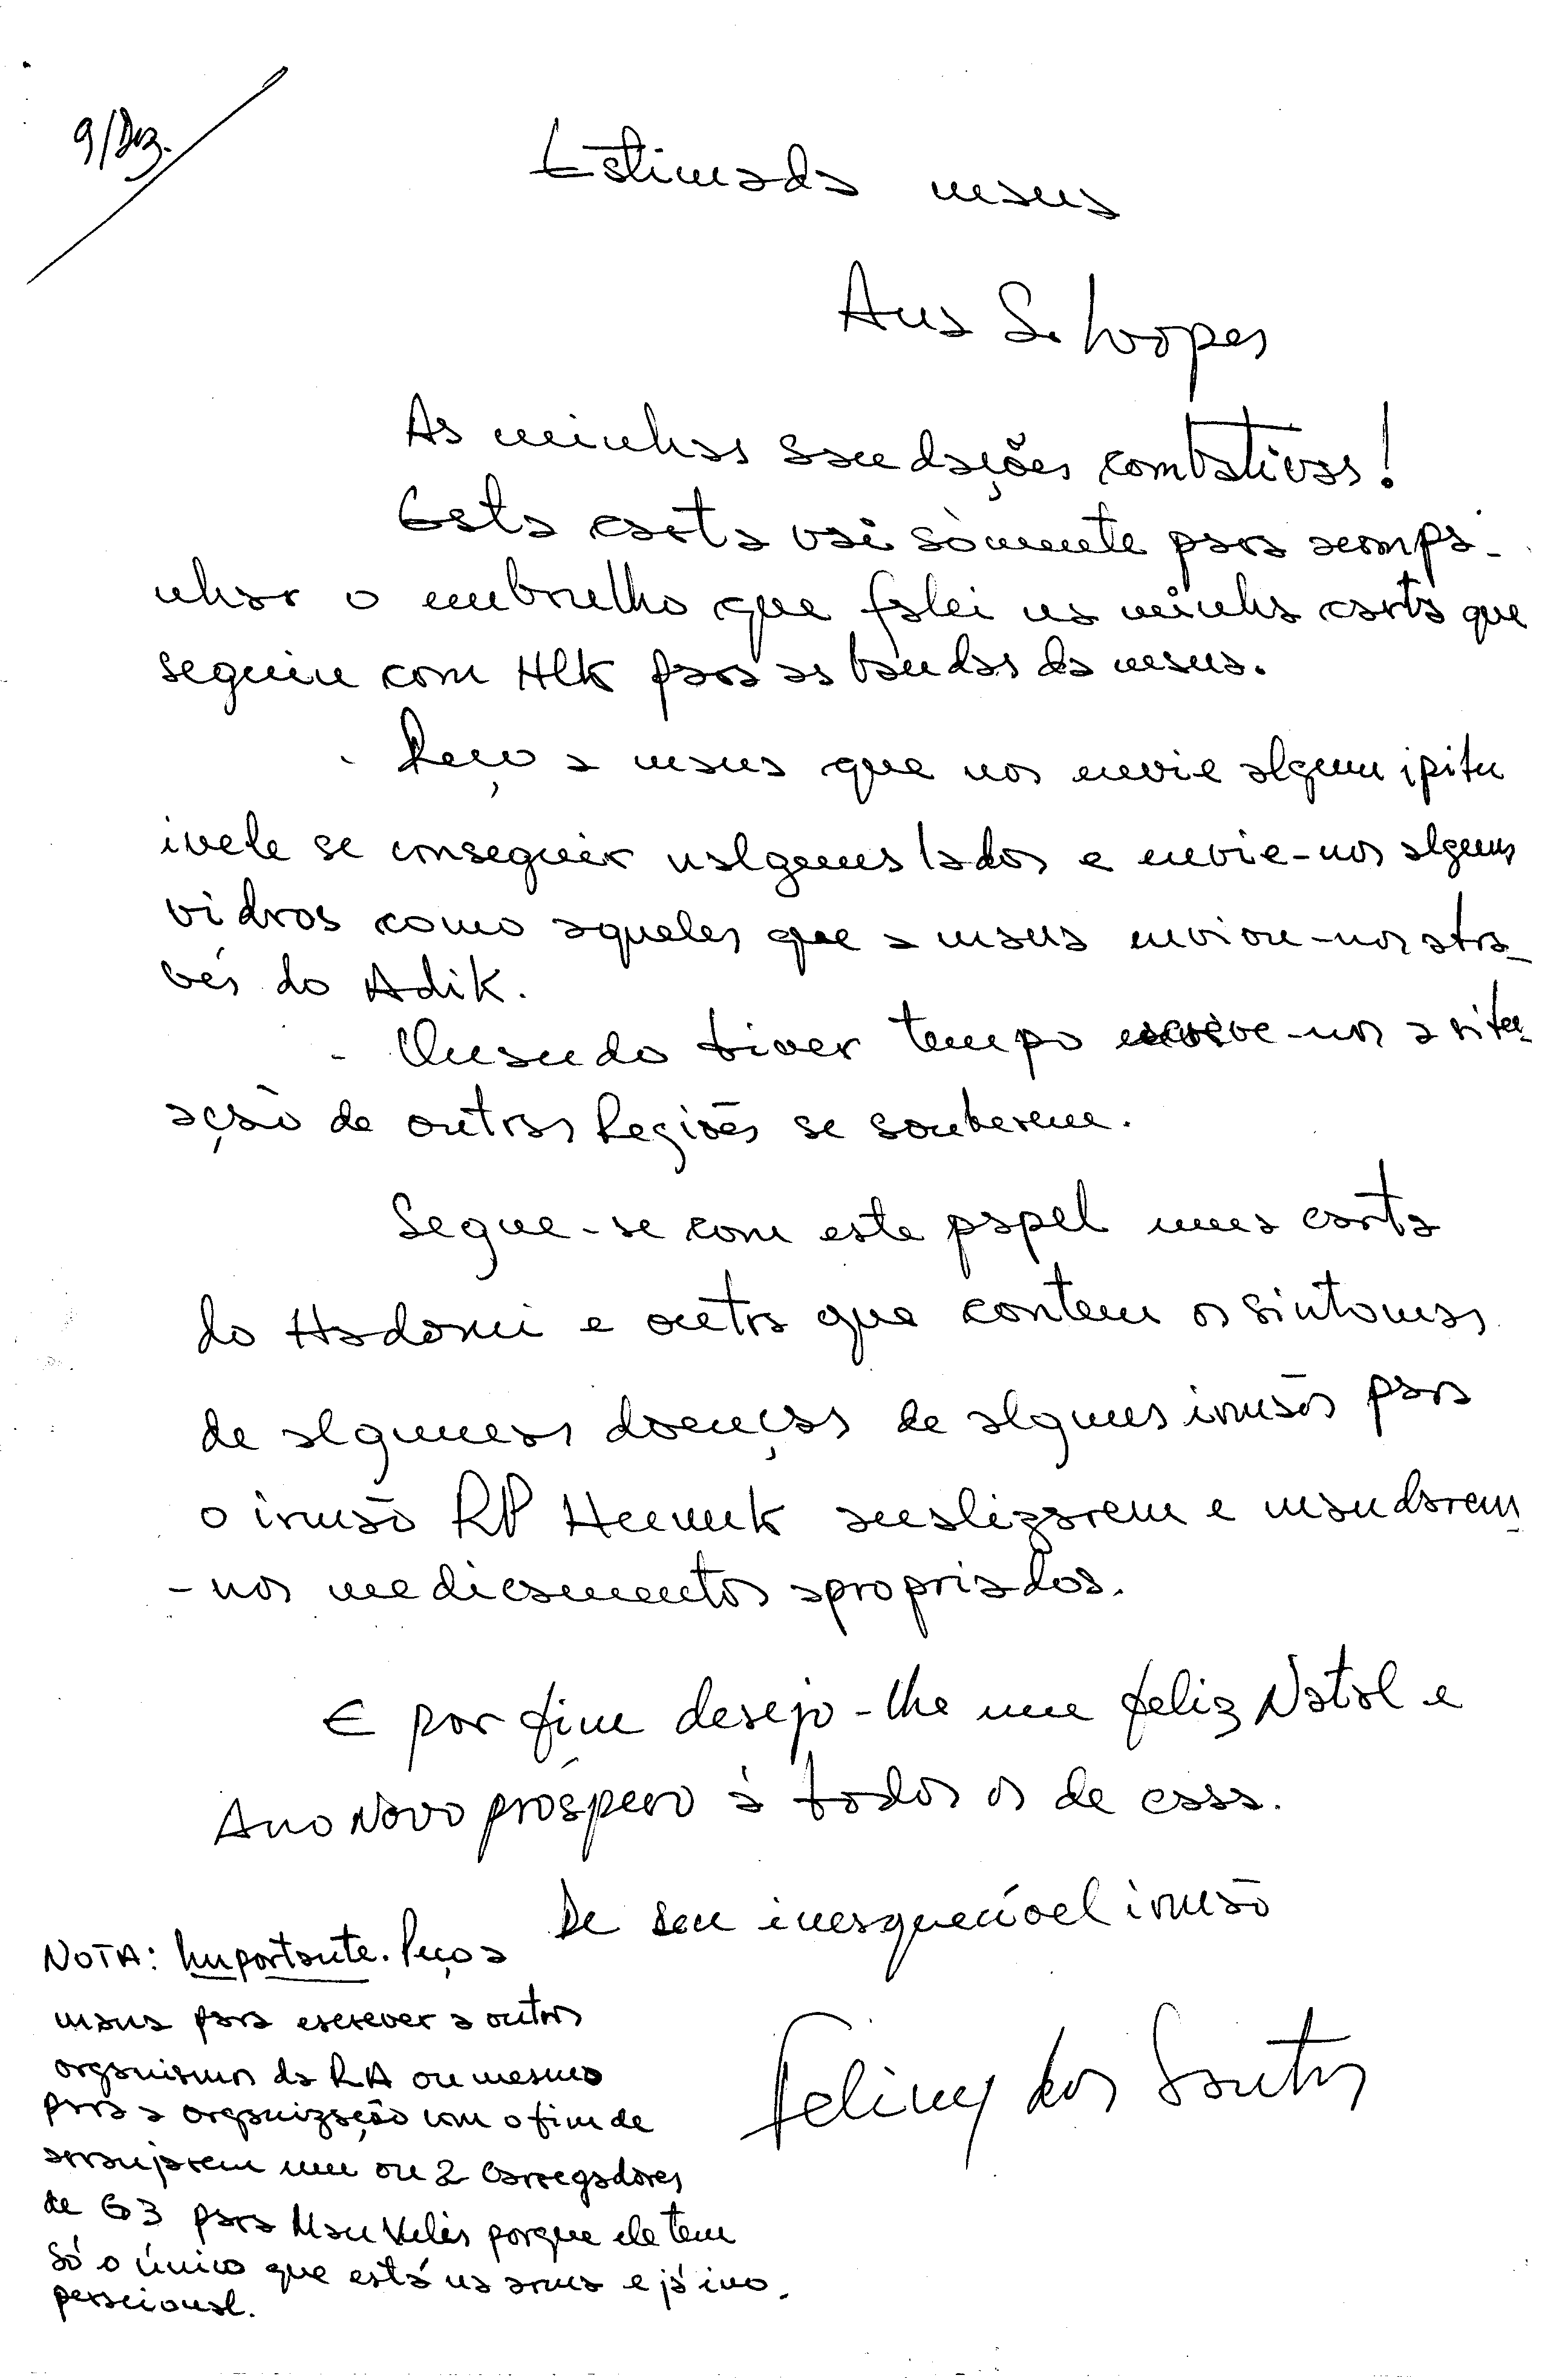 9/Dez.
Estimada mana
Ana S. Loopes
As minhas saudações combativas!
Esta carta vai sòmente para acompa-
nhar o embrulho que falei na minha carta que
seguiu com Hlk para as bandas da mana.
- Peço a mana que nos envie algum ipitu
inete se conseguir nalguns lados e envie-nos alguns
vidros como aqueles que a mana enviou-nos atra-
vés do Adik.
- Quando tiver tempo escreve-nos a situ-
ação de outras Regiões se souberem.
Segue-se com este papel uma carta
do Hadomi e outra que contem os sintomas
de algumas doenças de alguns irmãos para
o irmão RP Hermuk analizarem e mandarem
-nos medicamentos apropriados.
E por fim desejo-lhe um feliz Natal e
Ano Novo próspero à todos os de casa.
De seu inesquecível irmão
Feliny dos Santos
NOTA: Importante. Peço a
mana para escrever a outros
organismos da RA ou mesmo
para a organização com o fim de
arranjarem um ou 2 carregadores
de G3 para Mau Velis porque ele tem
só o único que está na arma e já ino-
peracional.